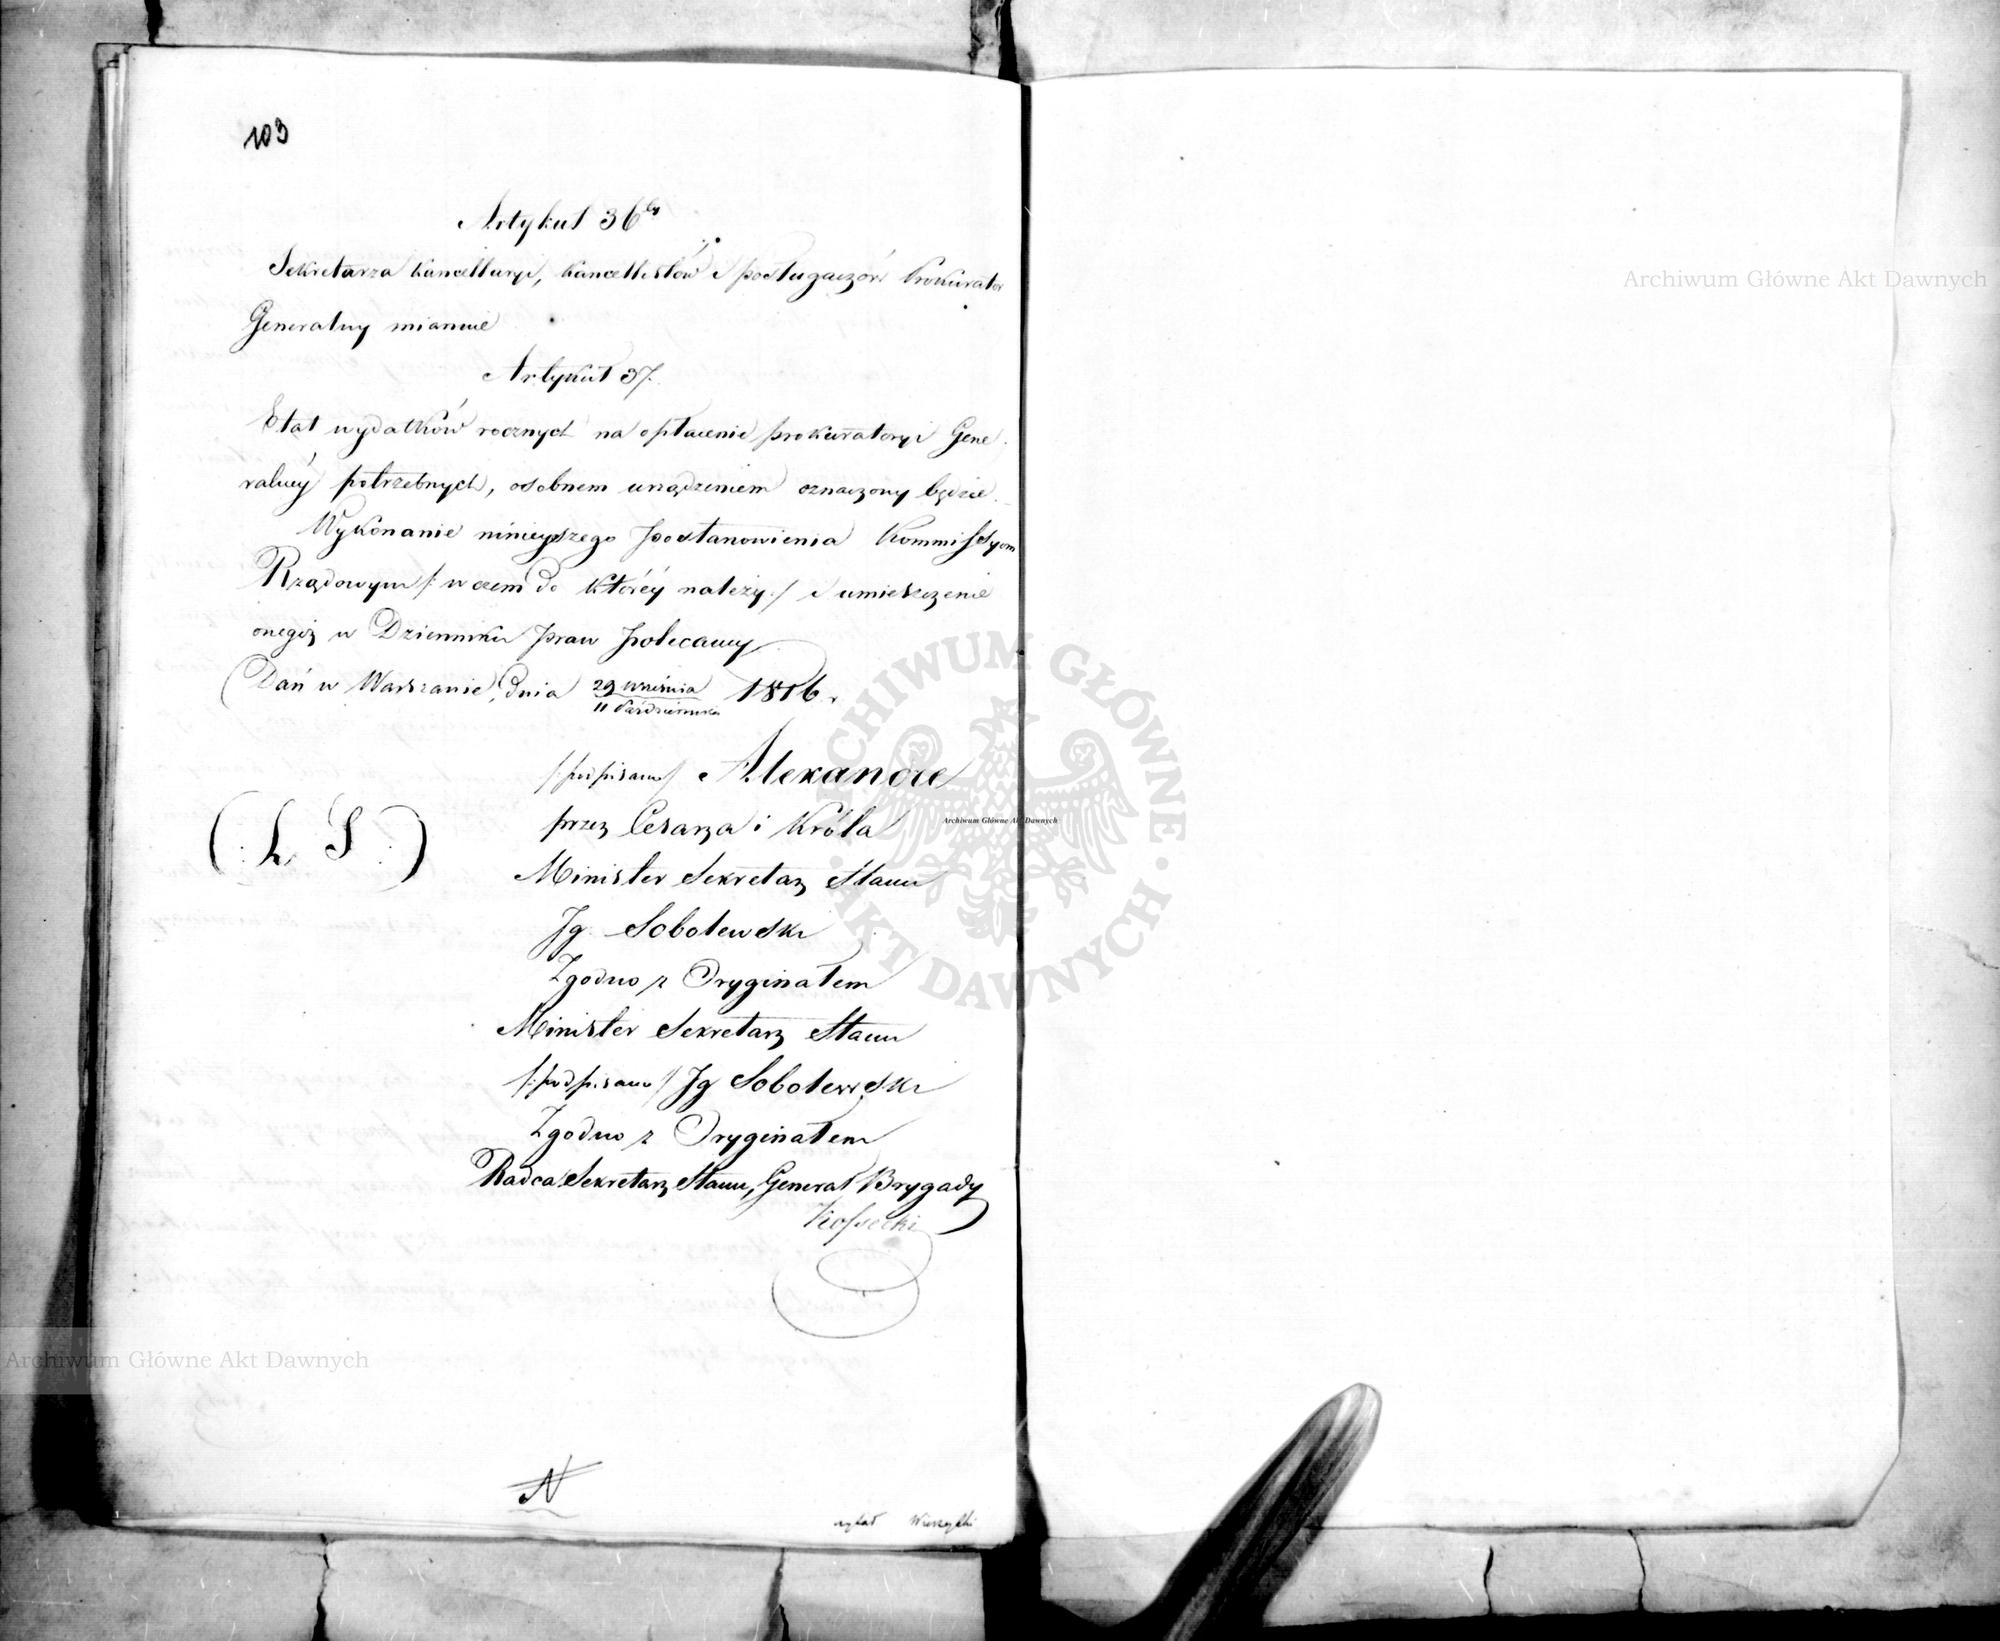 103
Artykuł 36ty
Sekretarza Kancellaryi, Kancellistów i posługaczów Prokurator
Generalny mianuie
Artykuł 37.
Etat wydatków rocznych na opłacenie prokuratoryi Gene
ralnéy potrzebnych, osobnem urządzeniem oznaczony będzie.
Wykonanie ninieyszego postanowienia Kommissyom
Rządowym /: w czem do któréy należy :/ i umieszczenie
onegóż w Dzienniku praw polecamy
Dań w Warszawie, dnia 29 Września / 11 Października 1816 r.
/: podpisano / Alexandre
przez Cesarza i Króla
(: L. S :)
Minister Sekretarz Stanu
Ig. Sobolewski
Zgodno z Oryginałem
Minister Sekretarz Stanu
/: podpisano :/ Ig Sobolewski
Zgodno z Oryginałem
Radca Sekretarz Stanu, Generał Brygady
Kossecki
N
czytał
Archiwum Główne Akt Dawnych
Archiwum Główne Akt Dawnych
Archiwum Główne Akt Dawnych
ARCHIWUM GŁÓWNE · AKT DAWNYCH ·